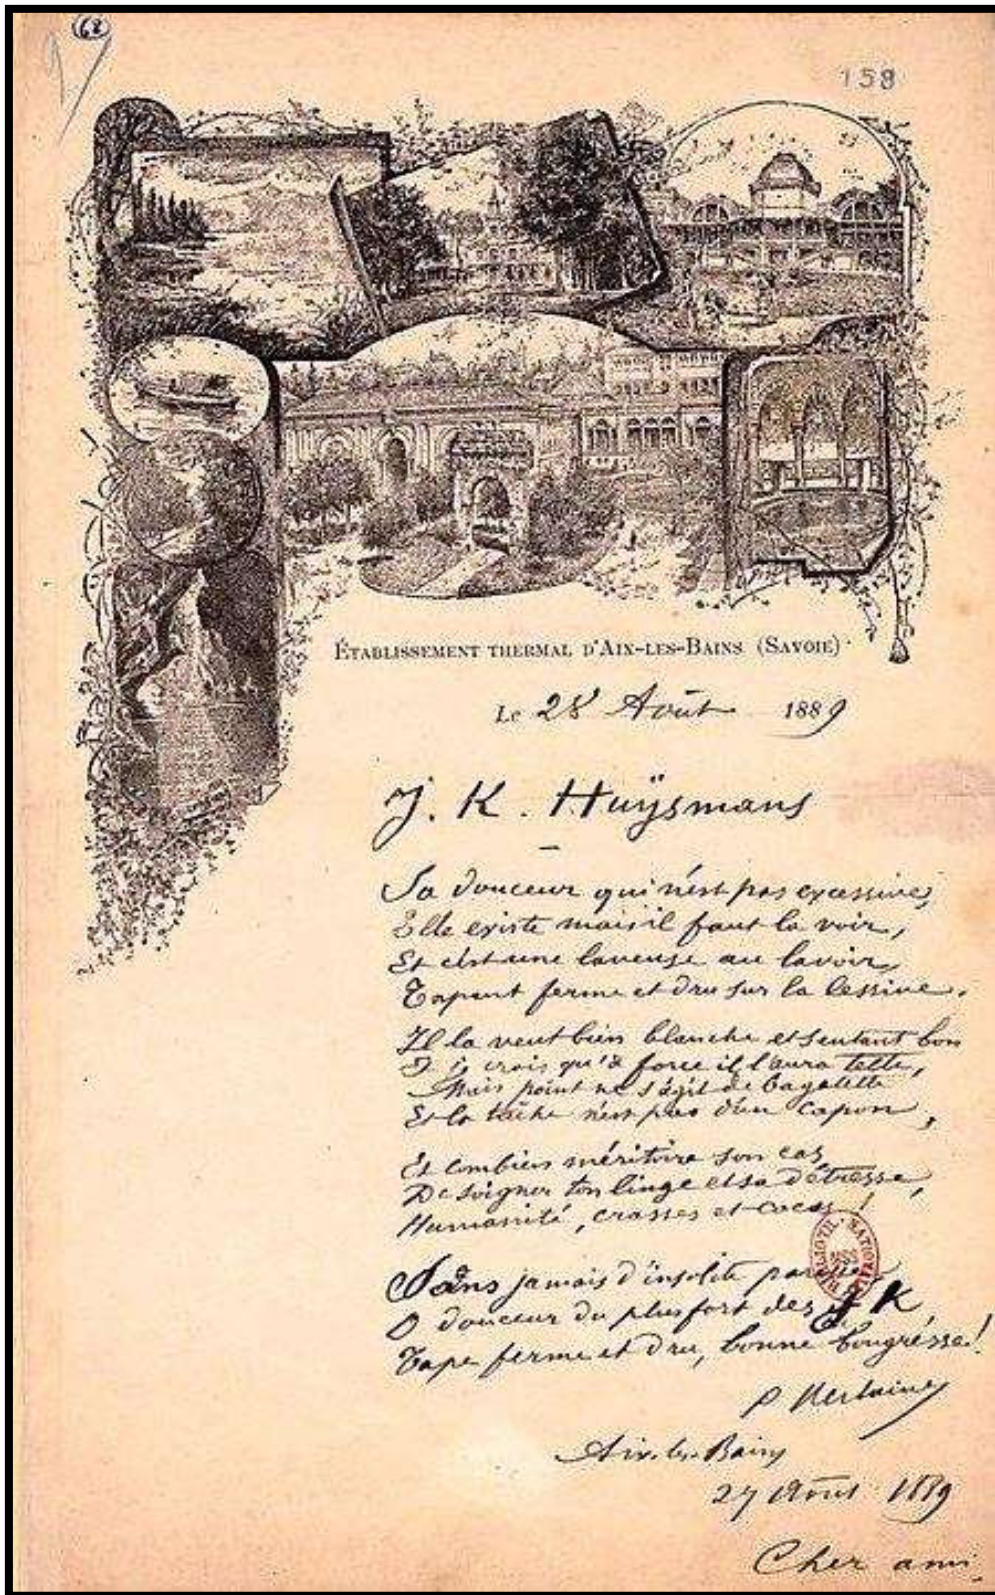 68
158
ÉTABLISSEMENT THERMAL D'AIX-LES-BAINS (SAVOIE)
Le 28 Août 1889
J. K. Huÿsmans
Sa douceur qui n'est pas excessive,
Elle existe mais il faut la voir,
Et c'est une laveuse au lavoir
Tapant ferme et dru sur la lessive.
Il la veut bien blanche et sentant bon
Et je crois qu'à force il l'aura telle,
Mais point ne s'agit de bagatelle
Et la tâche n'est pas d'un capon,
Et combien méritoire son cas
De soigner ton linge et sa détresse,
Humanité, crasses et cacas !
Sans jamais d'insolite paresse
O douceur du plus fort des J K
Tape ferme et dru, bonne bougresse !
P Verlaine
Aix-les-Bains
27 Août 1889
Cher ami,